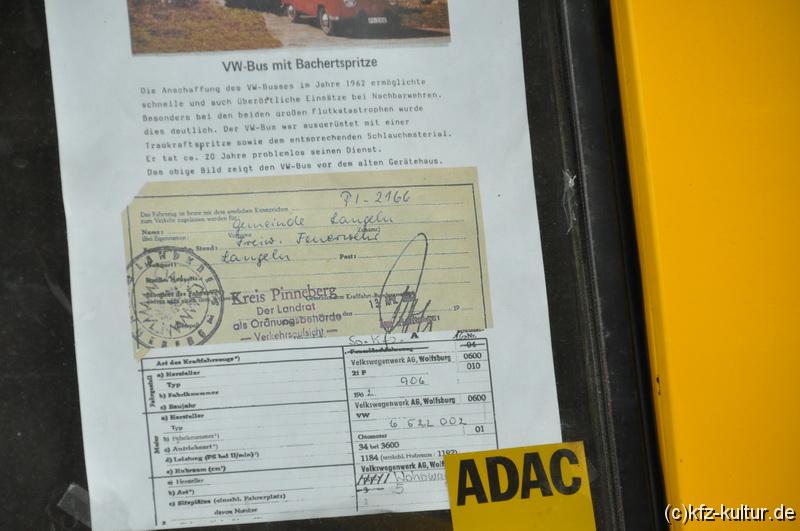 VW-Bus mit Bachertspritze
Die Anschaffung des VW-Busses im Jahre 1962 ermöglichte
schnelle und auch überörtliche Einsätze bei Nachbarwehren.
Besonders bei den beiden großen Flutkatastrophen wurde
dies deutlich. Der VW-Bus war ausgerüstet mit einer
Tragkraftspritze sowie dem entsprechenden Schlauchmaterial.
Er tat ca. 20 Jahre problemlos seinen Dienst.
Das obige Bild zeigt den VW-Bus vor dem alten Gerätehaus.
PI-2166
Das Fahrzeug ist heute mit dem amtlichen Kennzeichen
zum Verkehr zugelassen worden für
Name: Gemeinde Langeln
Freiw. Feuerwehr
Stand:
Langeln
Post:
Kreis Pinneberg
Der Landrat
als Ordnungsbehörde
— Verkehrsaufsicht —
13
19
A
Art des Kraftfahrzeuges
04
a) Hersteller Volkswagenwerk AG, Wolfsburg 0600
Typ 21 F 010
b) Fabriknummer 906
c) Baujahr 196
a) Hersteller Volkswagenwerk AG, Wolfsburg 0600
Typ VW
b) Fabriknummer 6 522 002
c) Antriebsart Ottomotor 01
d) Leistung (PS bei U/min) 34 bei 3600
e) Hubraum (cm³) 1184 (steuerl. Hubraum: 1192)
a) Hersteller Volkswagenwerk AG, Wolfsburg
b) Art
c) Sitzplätze (einschl. Führerplatz) 5
davon Notsitze
ADAC
(c)kfz-kultur.de